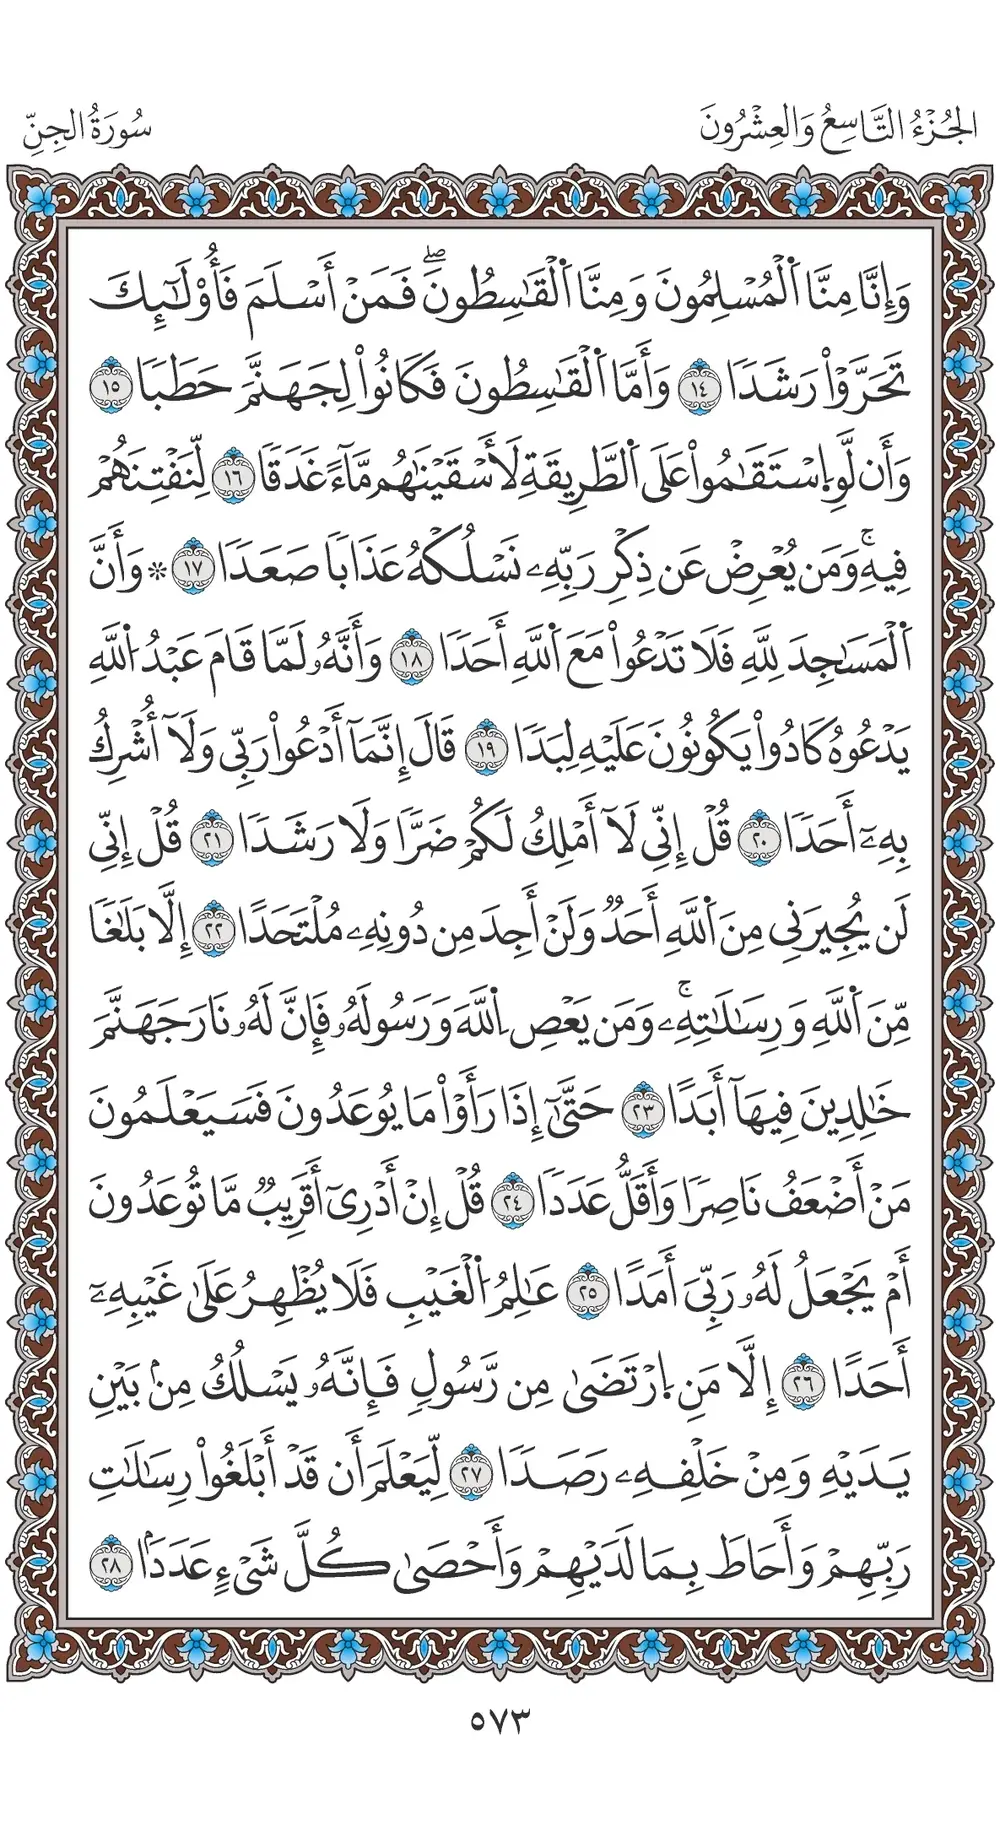 الجُزْءُ التَّاسِعُ وَالعِشْرُونَ سُورَةُ الجِنِّ
وَإِنَّا مِنَّا ٱلْمُسْلِمُونَ وَمِنَّا ٱلْقَٰسِطُونَۖ فَمَنْ أَسْلَمَ فَأُو۟لَٰٓئِكَ
تَحَرَّوْا۟ رَشَدًا ١٤ وَأَمَّا ٱلْقَٰسِطُونَ فَكَانُوا۟ لِجَهَنَّمَ حَطَبًا ١٥
وَأَن لَّوِ ٱسْتَقَٰمُوا۟ عَلَى ٱلطَّرِيقَةِ لَأَسْقَيْنَٰهُم مَّآءً غَدَقًا ١٦ لِّنَفْتِنَهُمْ
فِيهِۚ وَمَن يُعْرِضْ عَن ذِكْرِ رَبِّهِۦ نَسْلُكْهُ عَذَابًا صَعَدًا ١٧ * وَأَنَّ
ٱلْمَسَٰجِدَ لِلَّهِ فَلَا تَدْعُوا۟ مَعَ ٱللَّهِ أَحَدًا ١٨ وَأَنَّهُۥ لَمَّا قَامَ عَبْدُ ٱللَّهِ
يَدْعُوهُ كَادُوا۟ يَكُونُونَ عَلَيْهِ لِبَدًا ١٩ قَالَ إِنَّمَآ أَدْعُوا۟ رَبِّى وَلَآ أُشْرِكُ
بِهِۦٓ أَحَدًا ٢٠ قُلْ إِنِّى لَآ أَمْلِكُ لَكُمْ ضَرًّا وَلَا رَشَدًا ٢١ قُلْ إِنِّى
لَن يُجِيرَنِى مِنَ ٱللَّهِ أَحَدٌ وَلَنْ أَجِدَ مِن دُونِهِۦ مُلْتَحَدًا ٢٢ إِلَّا بَلَٰغًا
مِّنَ ٱللَّهِ وَرِسَٰلَٰتِهِۦۚ وَمَن يَعْصِ ٱللَّهَ وَرَسُولَهُۥ فَإِنَّ لَهُۥ نَارَ جَهَنَّمَ
خَٰلِدِينَ فِيهَآ أَبَدًا ٢٣ حَتَّىٰٓ إِذَا رَأَوْا۟ مَا يُوعَدُونَ فَسَيَعْلَمُونَ
مَنْ أَضْعَفُ نَاصِرًا وَأَقَلُّ عَدَدًا ٢٤ قُلْ إِنْ أَدْرِىٓ أَقَرِيبٌ مَّا تُوعَدُونَ
أَمْ يَجْعَلُ لَهُۥ رَبِّىٓ أَمَدًا ٢٥ عَٰلِمُ ٱلْغَيْبِ فَلَا يُظْهِرُ عَلَىٰ غَيْبِهِۦٓ
أَحَدًا ٢٦ إِلَّا مَنِ ٱرْتَضَىٰ مِن رَّسُولٍ فَإِنَّهُۥ يَسْلُكُ مِنۢ بَيْنِ
يَدَيْهِ وَمِنْ خَلْفِهِۦ رَصَدًا ٢٧ لِّيَعْلَمَ أَن قَدْ أَبْلَغُوا۟ رِسَٰلَٰتِ
رَبِّهِمْ وَأَحَاطَ بِمَا لَدَيْهِمْ وَأَحْصَىٰ كُلَّ شَىْءٍ عَدَدًۢا ٢٨
٥٧٣